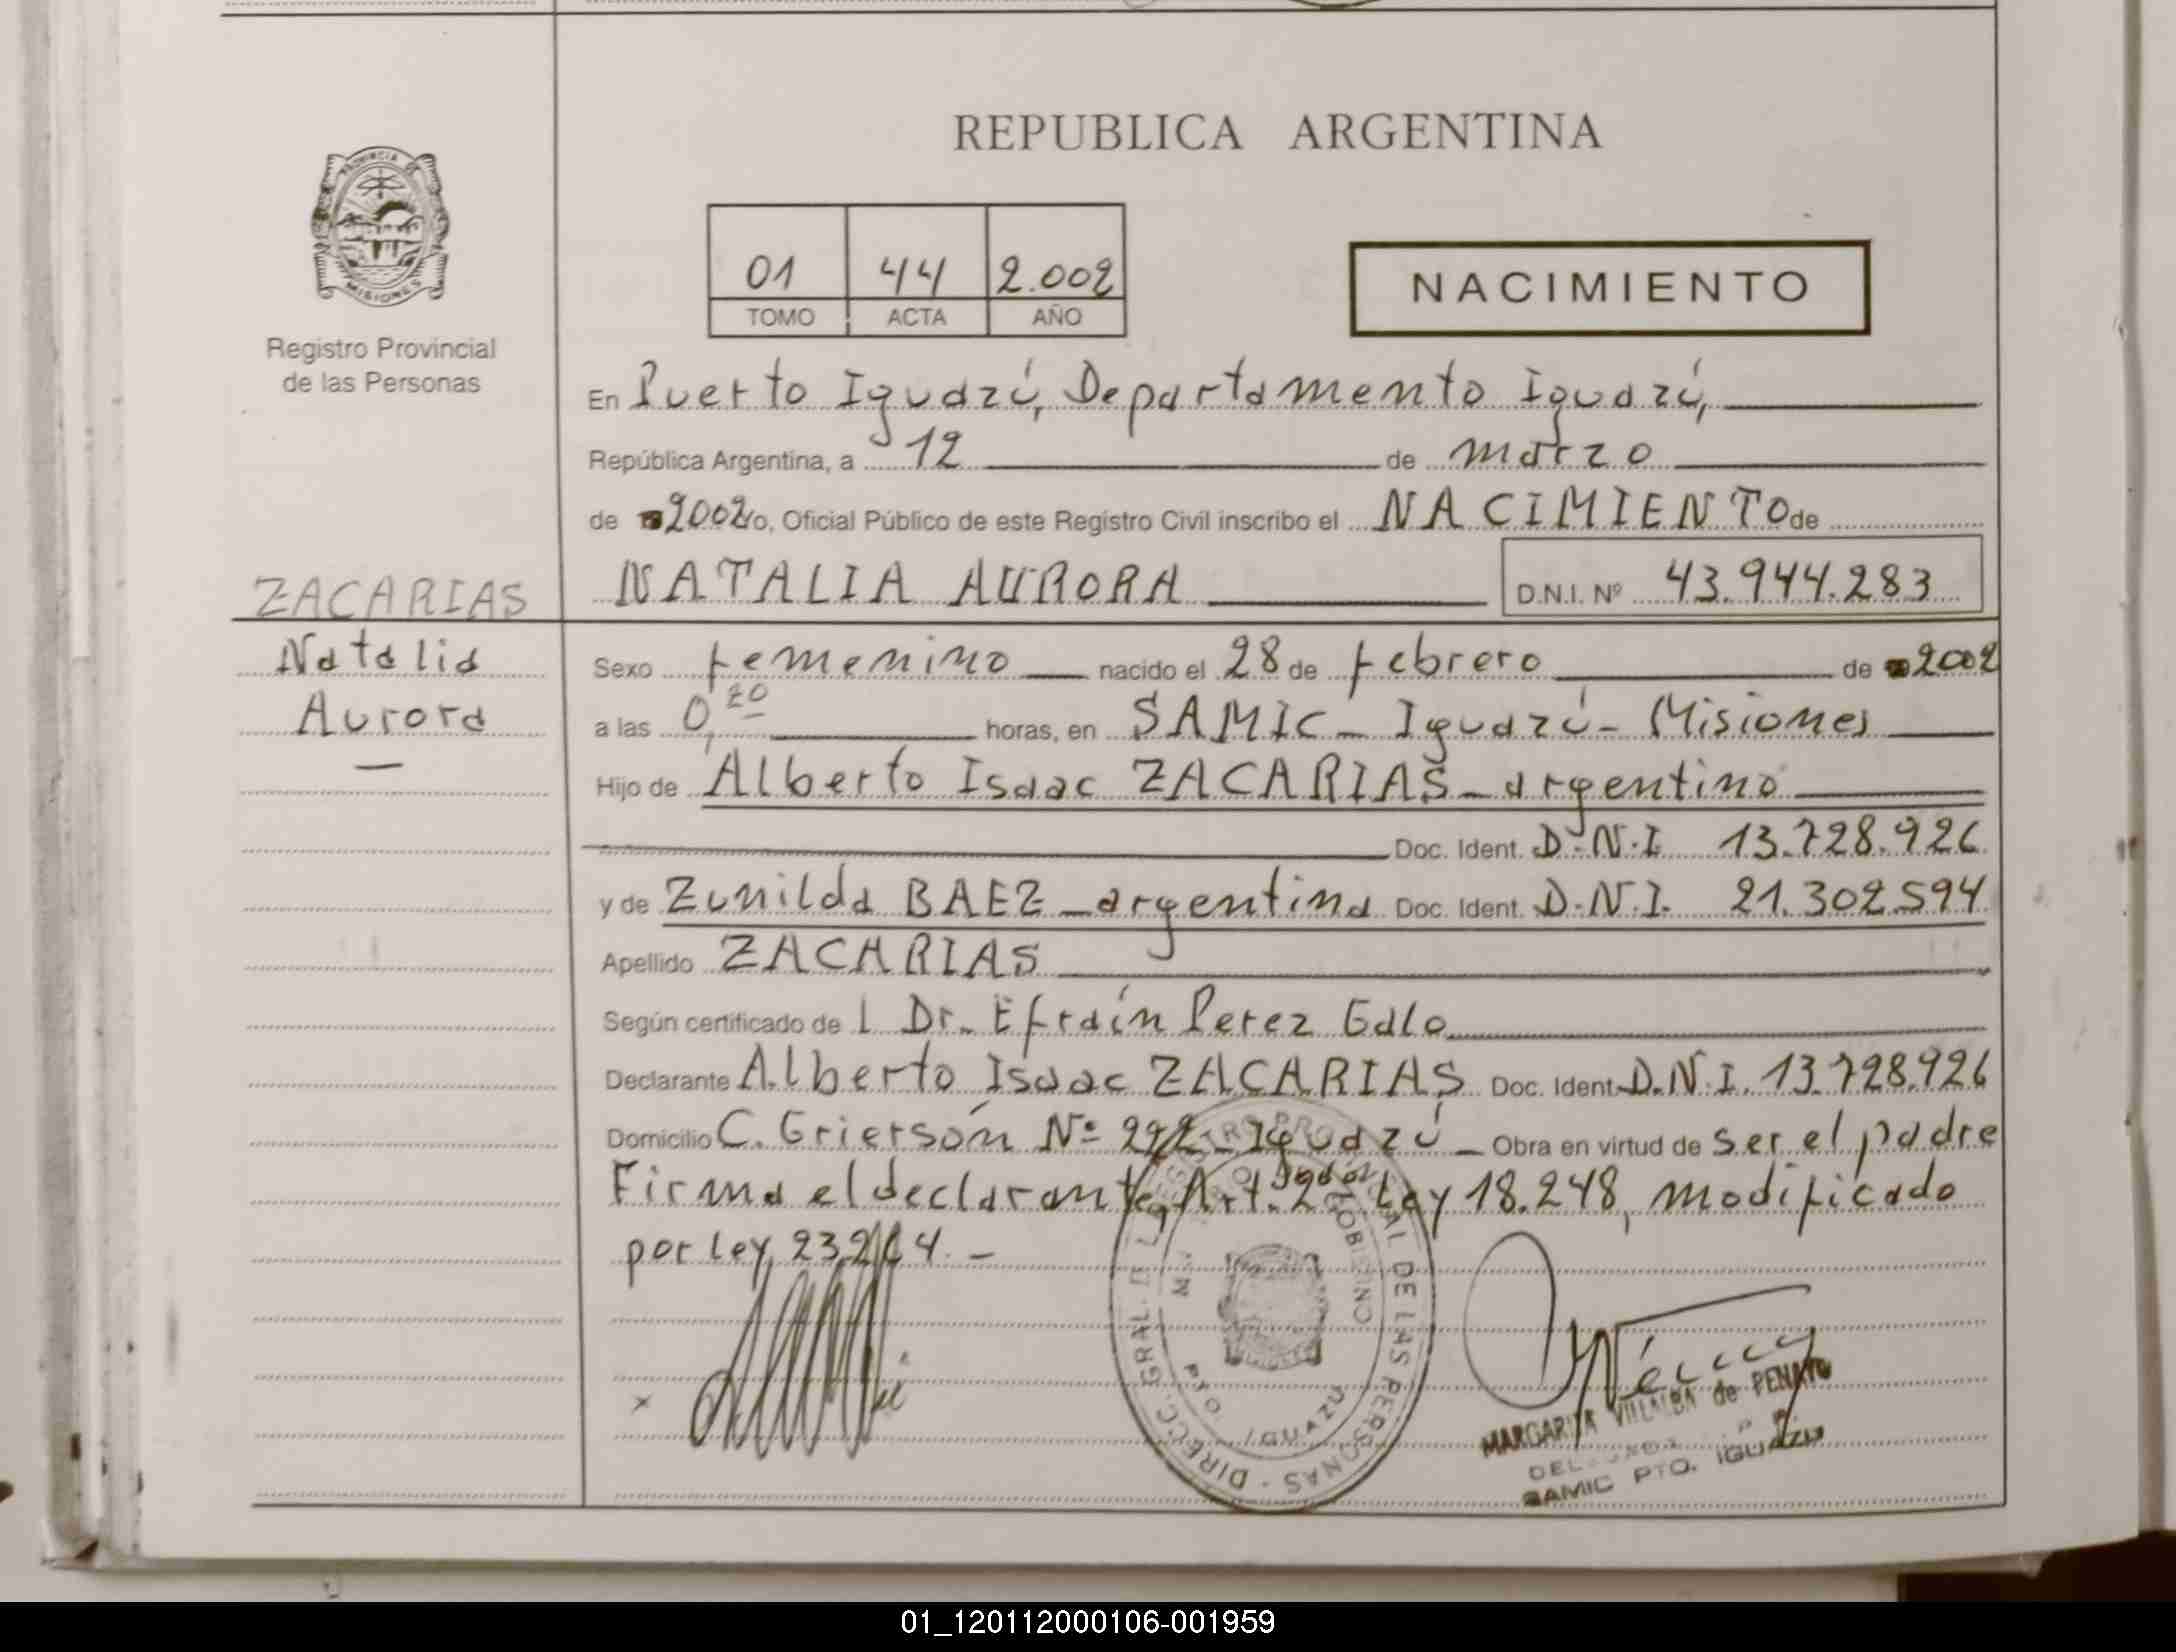 REPUBLICA ARGENTINA
PROVINCIA DE
MISIONES
Registro Provincial
de las Personas
01 44 2.002
TOMO ACTA AÑO
NACIMIENTO
En Puerto Iguazú, Departamento Iguazú,
República Argentina, a 12 de marzo
de 2002 o, Oficial Público de este Registro Civil inscribo el NACIMIENTO de
NATALIA AURORA D.N.I. Nº 43.944.283
ZACARIAS
Natalia
Aurora
Sexo femenino nacido el 28 de febrero de 2002
a las 0,20 horas, en SAMIC - Iguazú - Misiones
Hijo de Alberto Isaac ZACARIAS - argentino
Doc. Ident. D.N.I. 13.728.926
y de Zunilda BAEZ - argentina Doc. Ident. D.N.I. 21.302.594
Apellido ZACARIAS
Según certificado de l Dr. Efraín Perez Galo
Declarante Alberto Isaac ZACARIAS Doc. Ident. D.N.I. 13.728.926
Domicilio C. Griersón Nº 292 - Iguazú - Obra en virtud de ser el padre
Firma el declarante, Art. 2º Ley 18.248, modificado
por Ley 23.264. -
DIRECC. GRAL. DE REGISTRO PROVINCIAL DE LAS PERSONAS
PTO. IGUAZU
MARGARITA VILLALBA de PENAYO
SAMIC PTO. IGUAZU
01_120112000106-001959